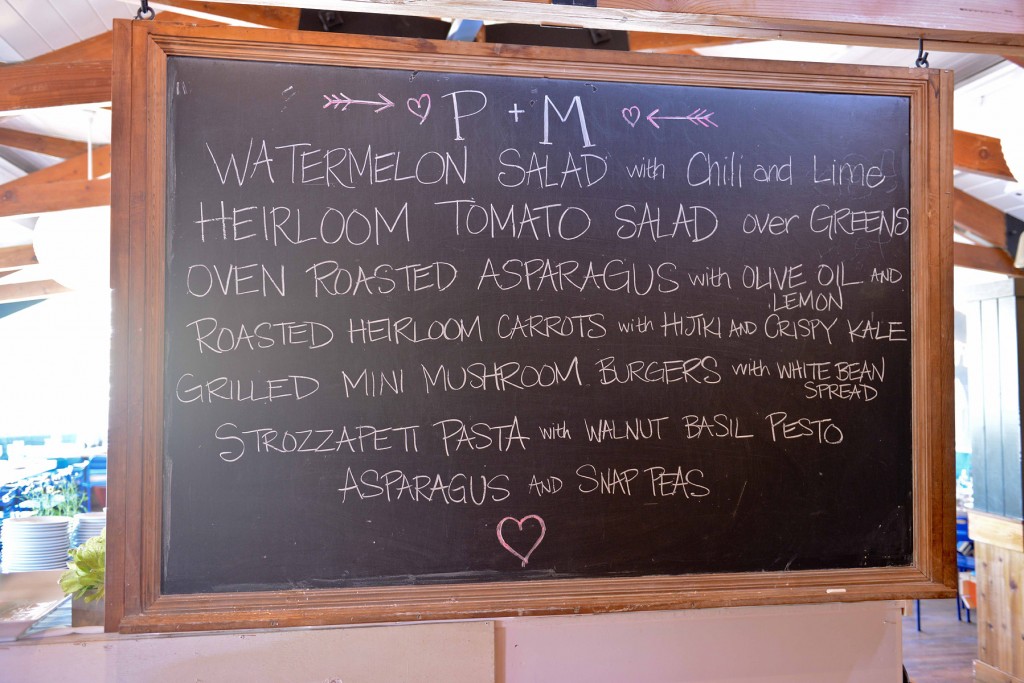 P + M
WATERMELON SALAD with Chili and Lime
HEIRLOOM TOMATO SALAD over GREENS
OVEN ROASTED ASPARAGUS with OLIVE OIL AND
LEMON
ROASTED HEIRLOOM CARROTS with HIJIKI AND CRISPY KALE
GRILLED MINI MUSHROOM BURGERS with WHITE BEAN
SPREAD
STROZZAPETI PASTA with WALNUT BASIL PESTO
ASPARAGUS AND SNAP PEAS